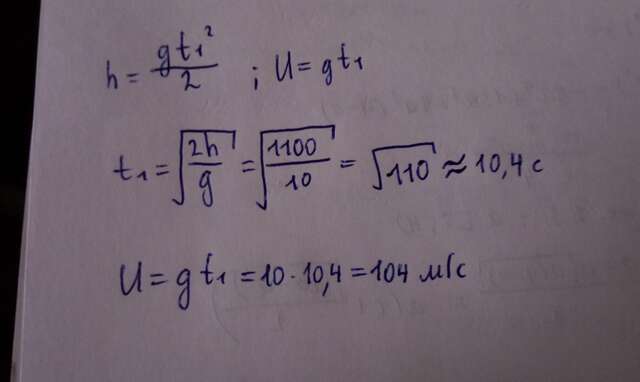 h = gt₁²/2 ; U = gt₁
t₁ = √(2h/g) = √(1100/10) = √110 ≈ 10,4 с
U = gt₁ = 10 · 10,4 = 104 м/с